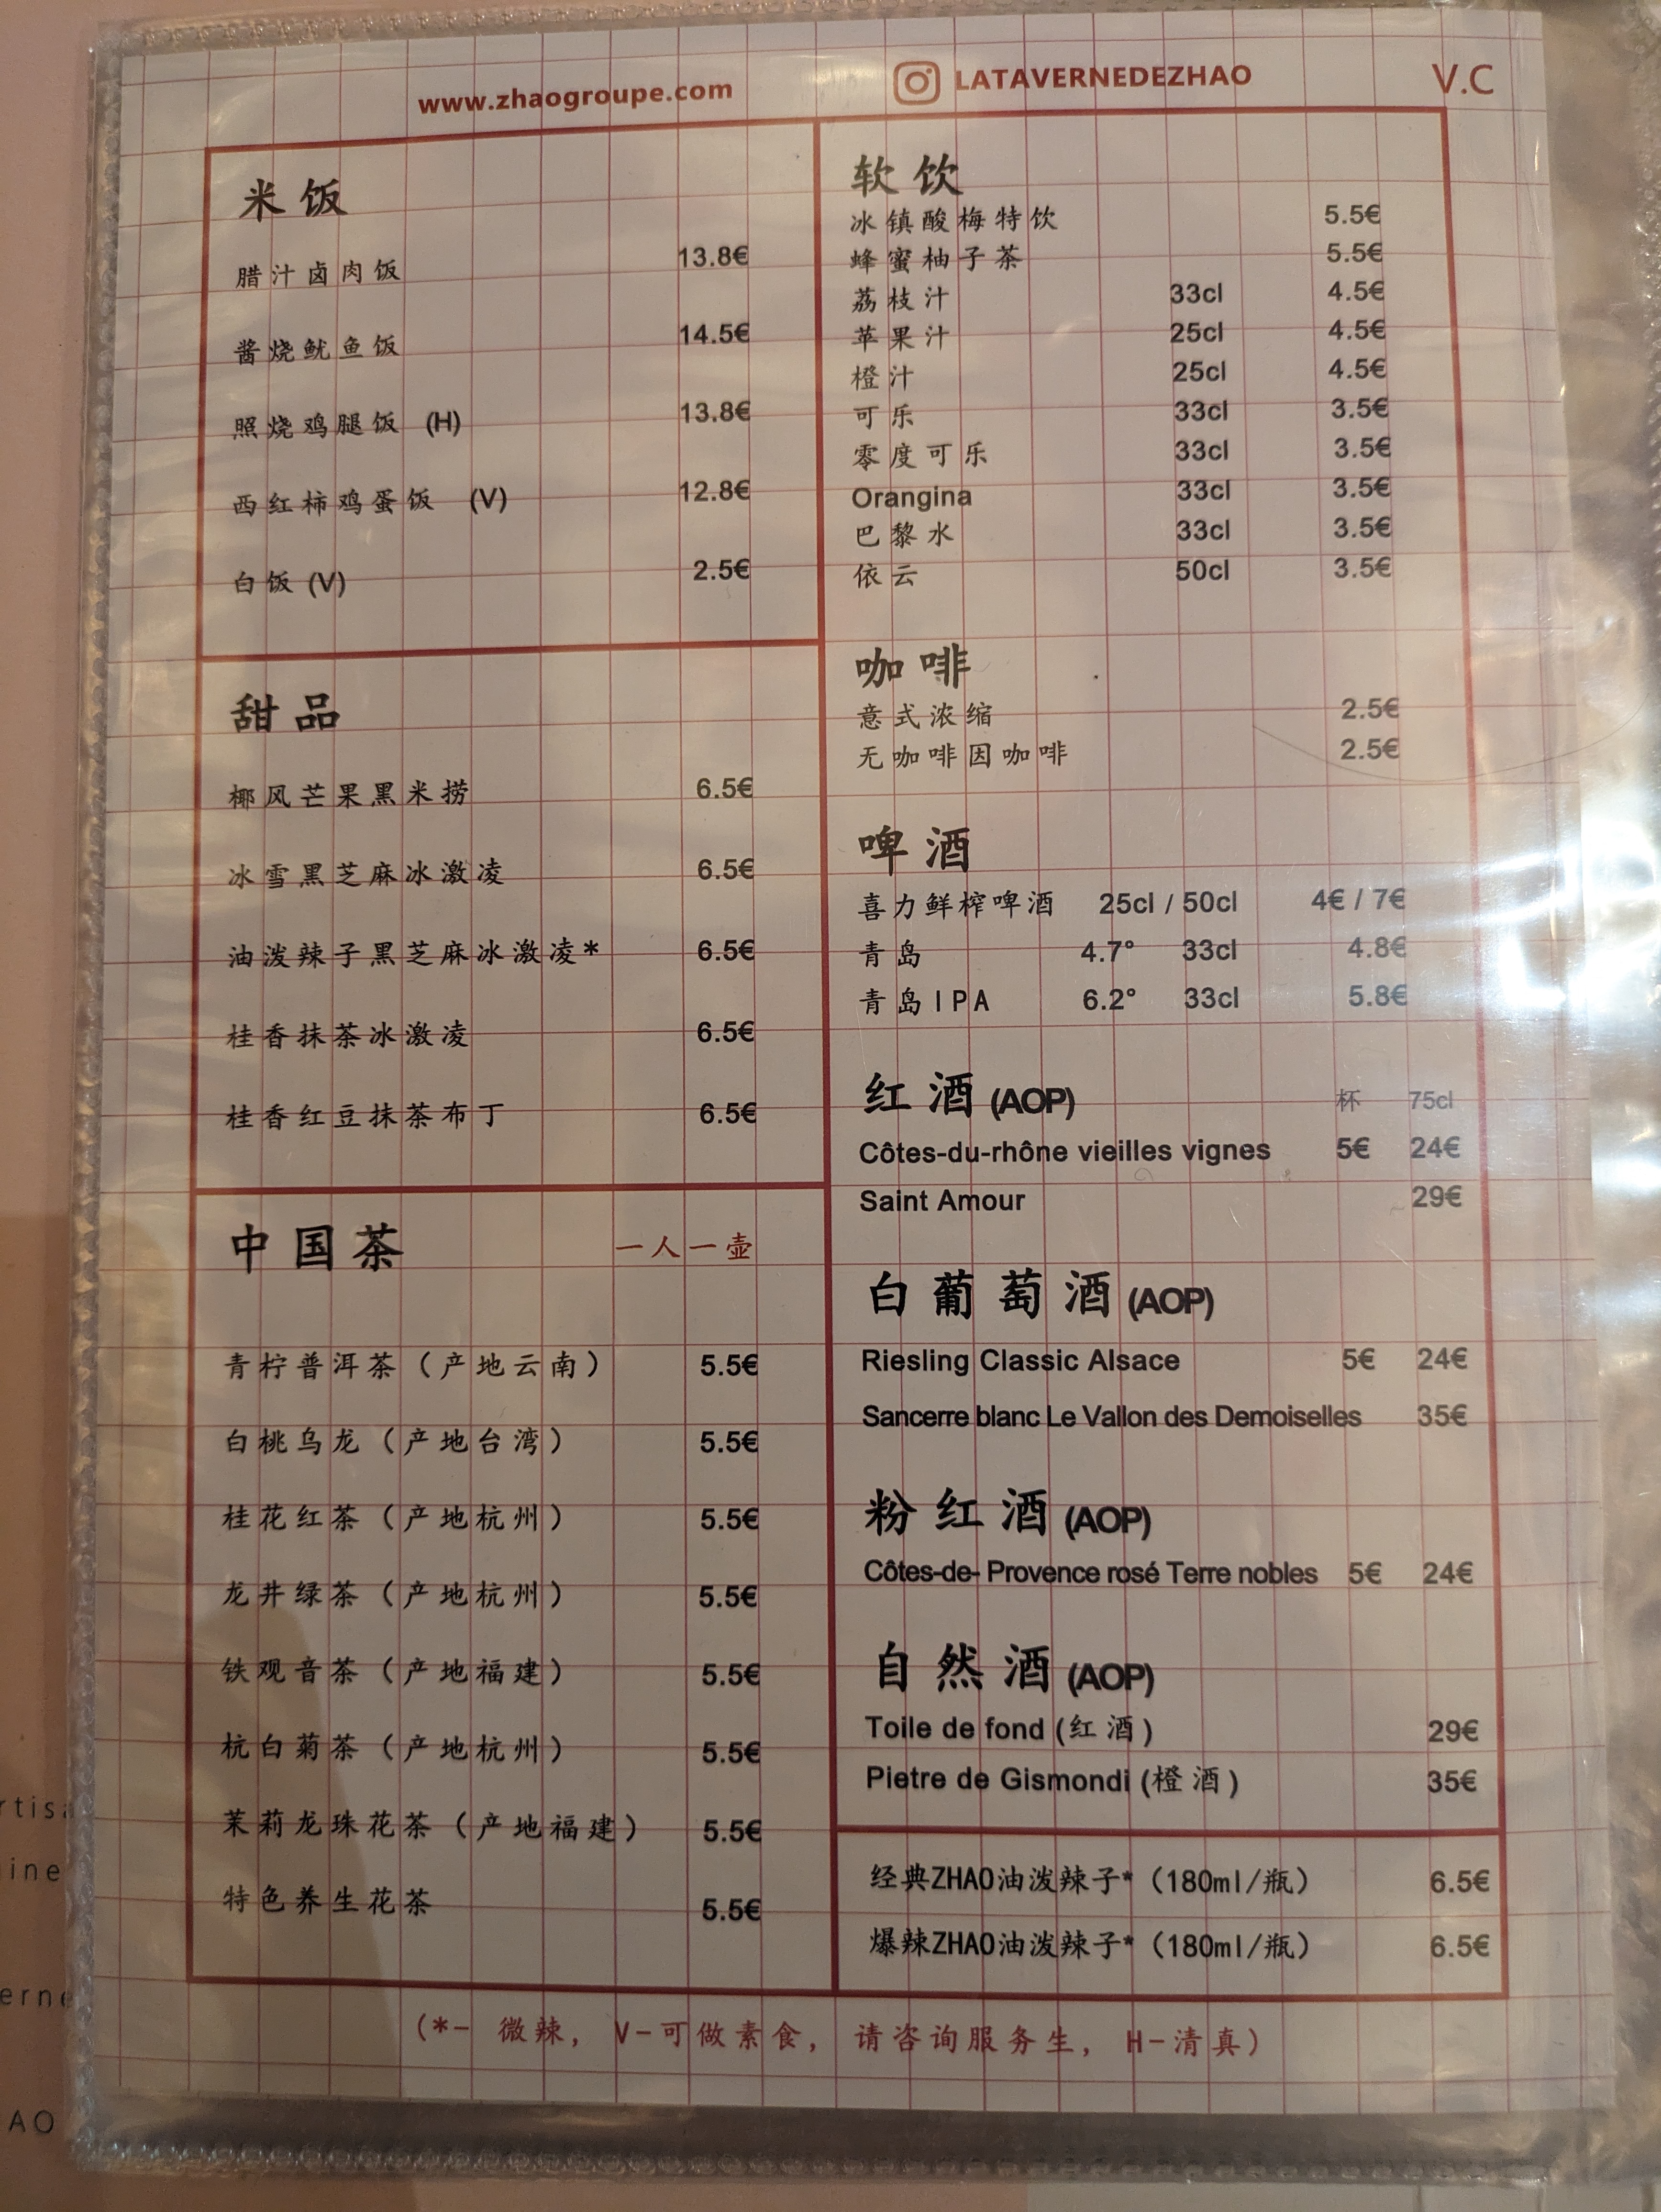 www.zhaogroupe.com
LATAVERNEDEZHAO
V.C
米饭
腊汁卤肉饭 13.8€
酱烧鱿鱼饭 14.5€
照烧鸡腿饭 (H) 13.8€
西红柿鸡蛋饭 (V) 12.8€
白饭 (V) 2.5€
甜品
椰风芒果黑米捞 6.5€
冰雪黑芝麻冰激凌 6.5€
油泼辣子黑芝麻冰激凌* 6.5€
桂香抹茶冰激凌 6.5€
桂香红豆抹茶布丁 6.5€
中国茶 一人一壶
青柠普洱茶（产地云南） 5.5€
白桃乌龙（产地台湾） 5.5€
桂花红茶（产地杭州） 5.5€
龙井绿茶（产地杭州） 5.5€
铁观音茶（产地福建） 5.5€
杭白菊茶（产地杭州） 5.5€
茉莉龙珠花茶（产地福建） 5.5€
特色养生花茶 5.5€
软饮
冰镇酸梅特饮 5.5€
蜂蜜柚子茶 5.5€
荔枝汁 33cl 4.5€
苹果汁 25cl 4.5€
橙汁 25cl 4.5€
可乐 33cl 3.5€
零度可乐 33cl 3.5€
Orangina 33cl 3.5€
巴黎水 33cl 3.5€
依云 50cl 3.5€
咖啡
意式浓缩 2.5€
无咖啡因咖啡 2.5€
啤酒
喜力鲜榨啤酒 25cl / 50cl 4€ / 7€
青岛 4.7° 33cl 4.8€
青岛IPA 6.2° 33cl 5.8€
红酒 (AOP) 杯 75cl
Côtes-du-rhône vieilles vignes 5€ 24€
Saint Amour 29€
白葡萄酒 (AOP)
Riesling Classic Alsace 5€ 24€
Sancerre blanc Le Vallon des Demoiselles 35€
粉红酒 (AOP)
Côtes-de- Provence rosé Terre nobles 5€ 24€
自然酒 (AOP)
Toile de fond (红酒) 29€
Pietre de Gismondi (橙酒) 35€
经典ZHAO油泼辣子*（180ml/瓶） 6.5€
爆辣ZHAO油泼辣子*（180ml/瓶） 6.5€
(*- 微辣, V-可做素食, 请咨询服务生, H-清真)